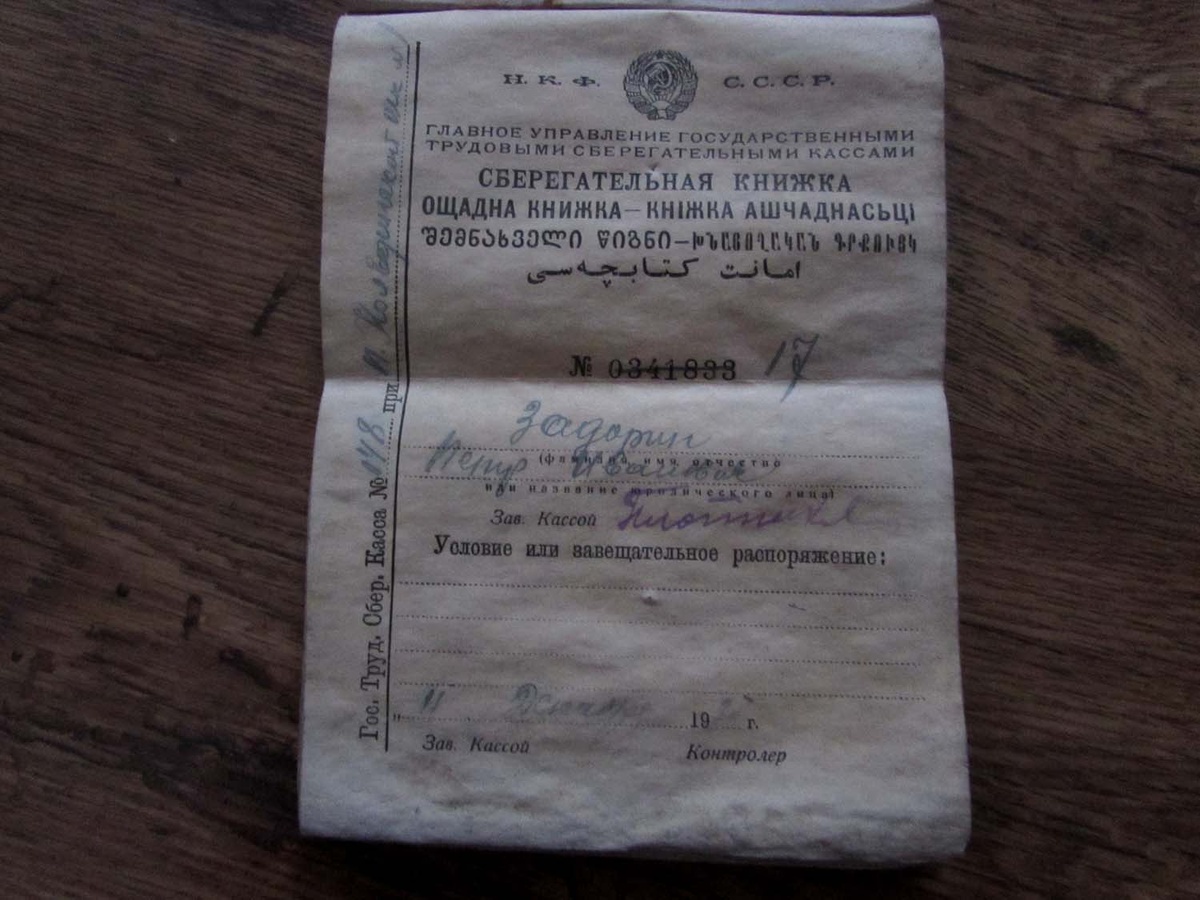 Н. К. Ф. С. С. С. Р.
ГЛАВНОЕ УПРАВЛЕНИЕ ГОСУДАРСТВЕННЫМИ
ТРУДОВЫМИ СБЕРЕГАТЕЛЬНЫМИ КАССАМИ
СБЕРЕГАТЕЛЬНАЯ КНИЖКА
ОЩАДНА КНИЖКА — КНІЖКА АШЧАДНАСЬЦІ
ՇԵՄՆԱՀՎԵԼԻ წიგნი — ԽՆԱՅՈՂԱԿԱՆ ԳՐՔՈՒՅԿ
امانت كتابچه‌سی
№ 0341833 17
Задорин
Петр Иванович
(фамилия, имя, отчество
или название юридического лица)
Зав. Кассой
Условие или завещательное распоряжение:
„11 193 г.
Зав. Кассой Контролер
Гос. Труд. Сбер. Касса № 048 при п.